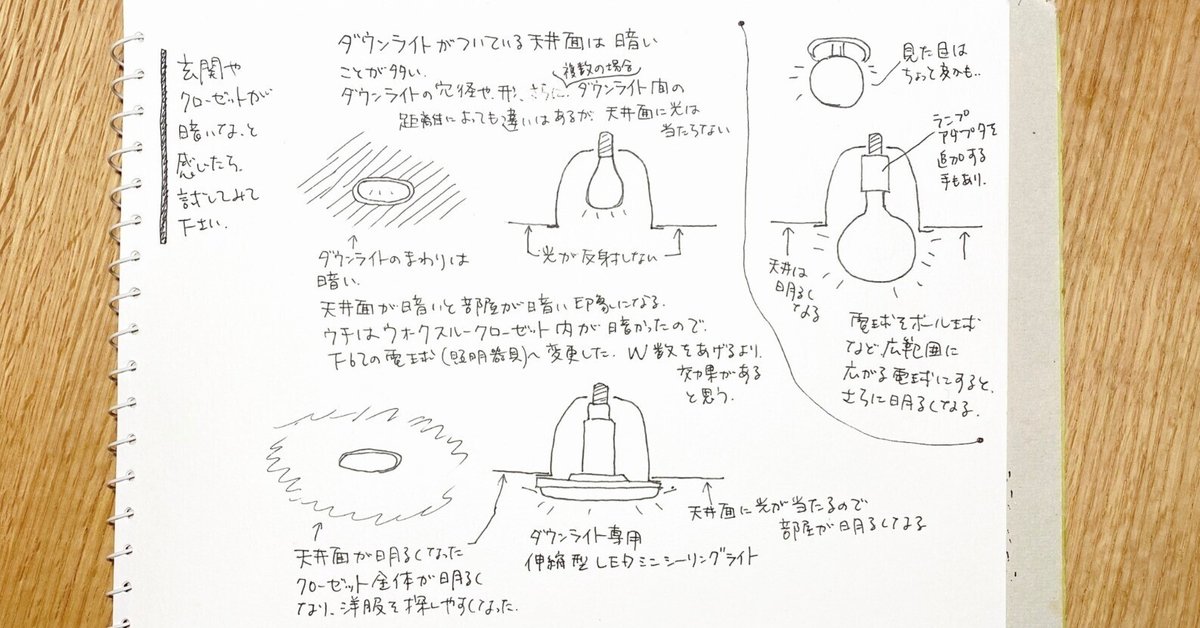 玄関や
クローゼットが
暗いな、と
感じたら、
試してみて
下さい.
ダウンライトがついている天井面は暗い
ことが多い.
複数の場合
ダウンライトの穴径や、形、さらに、ダウンライト間の
距離によっても違いはあるが、天井面に光は
当たらない
ダウンライトのまわりは
暗い.
光が反射しない
天井面が暗いと部屋が暗い印象になる.
ウチはウォークスルークローゼット内が暗かったので、
下の電球(照明器具)へ変更した. W数をあげるより、
効果がある
と思う.
天井面が明るくなった
クローゼット全体が明るく
なり、洋服を探しやすくなった.
ダウンライト専用
伸縮型LEDミニシーリングライト
天井面に光が当たるので
部屋が明るくなる
見た目は
ちょって変かも..
ランプ
アダプタを
追加する
手もあり.
天井は
明るく
なる
電球をボール球
など広範囲に
広がる電球にすると、
さらに明るくなる.